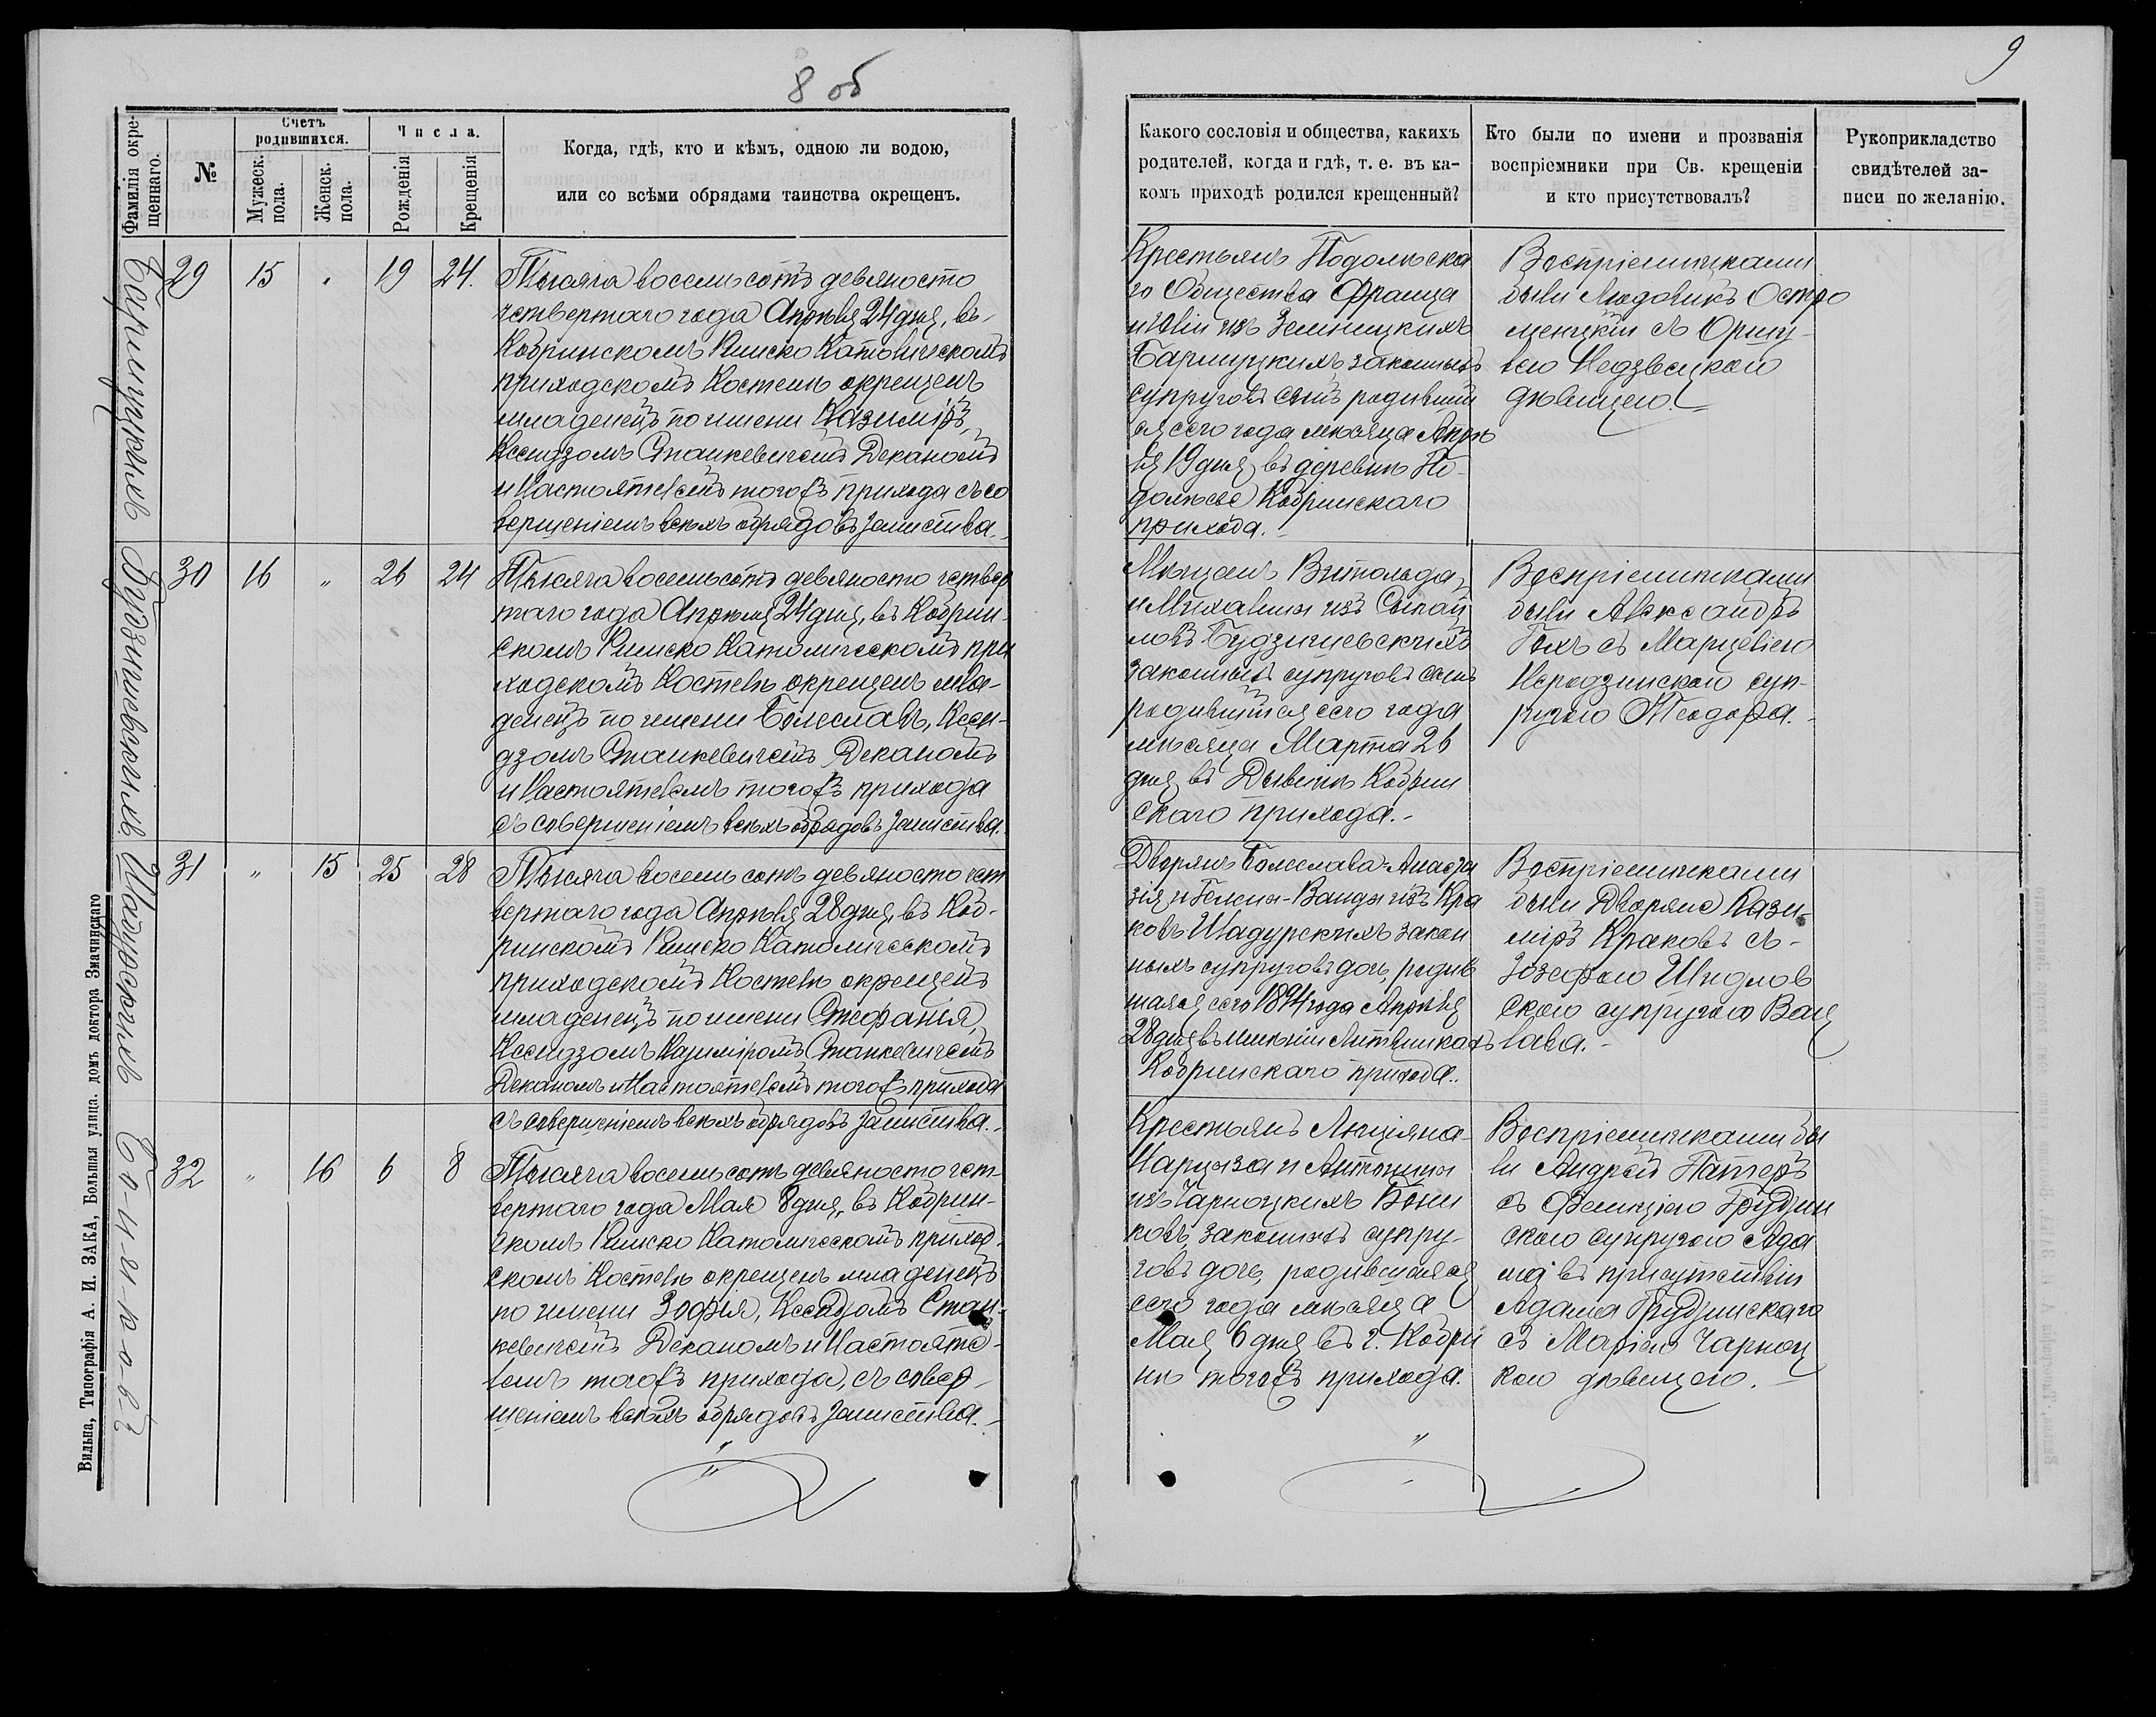 8 об
Фамилія окрещеннаго.
№
Счетъ родившихся.
Мужеск. пола.
Женск. пола.
Числа.
Рожденія
Крещенія
Когда, гдѣ, кто и кѣмъ, одною ли водою,
или со всѣми обрядами таинства окрещенъ.
29 15 „ 19 24.
Тысяча восемьсотъ девяносто
четвертаго года Апрѣля 24 дня, въ
Кобринскомъ Римско Католическомъ
приходскомъ Костелѣ окрещенъ
младенецъ по имени Казиміръ,
Ксендзомъ Станкевичемъ Деканомъ
и Настоятелемъ тогожъ прихода съ со
вершеніемъ всѣхъ обрядовъ таинства.
Будзишевскихъ
30 16 „ 26 24
Тысяча восемьсотъ девяносто четвер
таго года Апрѣля 24 дня, въ Кобрин-
скомъ Римско Католическомъ при
ходскомъ Костелѣ окрещенъ мла-
денецъ по имени Болеславъ, Ксен-
дзомъ Станкевичемъ Деканомъ
и Настоятелемъ тогожъ прихода
съ совершеніемъ всѣхъ обрядовъ таинства.
Шадурскихъ
31 „ 15 25 28
Тысяча восемьсотъ девяносто чет
вертаго года Апрѣля 28 дня, въ Коб-
ринскомъ Римско Католическомъ
приходскомъ Костелѣ окрещенъ
младенецъ по имени Стефанія,
Ксендзомъ Казиміромъ Станкевичемъ
Деканомъ и Настоятелемъ тогожъ прихода
съ совершеніемъ всѣхъ обрядовъ таинства.
Бониковъ
32 „ 16 6 8
Тысяча восемьсотъ девяносто чет-
вертаго года Мая 8 дня, въ Кобрин-
скомъ Римско Католическомъ приход-
скомъ Костелѣ окрещенъ младенецъ
по имени Зофія, Ксендзомъ Стан-
кевичемъ Деканомъ и Настояте-
лемъ тогожъ прихода, съ совер-
шеніемъ всѣхъ обрядовъ таинства.
Вильна, Типографія А. И. ЗАКА, Большая улица. домъ доктора Змачинскаго
9
Какого сословія и общества, какихъ
родителей, когда и гдѣ, т. е. въ ка-
комъ приходѣ родился крещенный?
Кто были по имени и прозванія
воспріемники при Св. крещеніи
и кто присутствовалъ?
Рукоприкладство
свидѣтелей за-
писи по желанію.
Крестьянъ Подольска
го Общества Франца
и Юліи изъ
законныхъ
супруговъ сынъ родивший
ся сего года мѣсяца Апрѣ
ля 19 дня, въ деревнѣ По-
долѣсье Кобринскаго
прихода.
Воспріемниками
были Людовикъ Остро
менцкій съ
девицею.
Мѣщанъ Витольда
и Михалины изъ
Будзишевскихъ
законныхъ супруговъ сынъ
родившійся сего года
мѣсяца Марта 26
дня въ Дывинѣ Кобрин
скаго прихода.
Воспріемниками
были Александръ
съ Марцеліею
суп-
ругою Теодора.
Дворянъ Болеслава-Анаста
зія и Гелены-Ванды изъ Кра
ковъ Шадурскихъ закон
ныхъ супруговъ дочь, родив
шаяся сего 1894 года Апрѣля
28 дня въ имѣніи Литвинкахъ
Кобринскаго прихода.
Воспріемниками
были Дворяне Кази-
міръ Краковъ съ
Юзефою Шидлов
скою супругою Вац
лава.
Крестьянъ Люціяна-
Нарциза и Антонины
изъ Чарноцкихъ Бони
ковъ, законныхъ супру-
говъ дочь, родившаяся
сего года мѣсяца
Мая 6 дня въ г. Кобри
нѣ тогожъ прихода.
Воспріемниками бы
ли Андрей Патеръ
съ Фелиціею Грудзин
скою супругою Ада
ма въ присутствіи
Адама Грудзинскаго
съ Маріею Чарноц
кою дѣвицею.